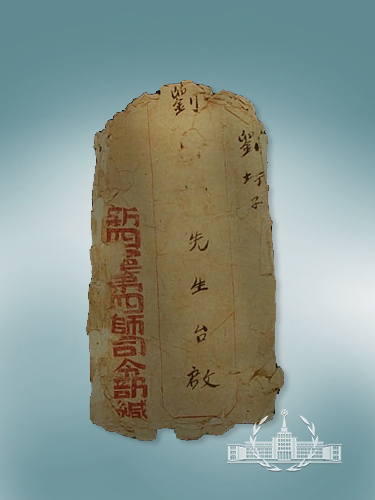 劉圩子
劉 先生台啟
新四軍第四師司令部緘